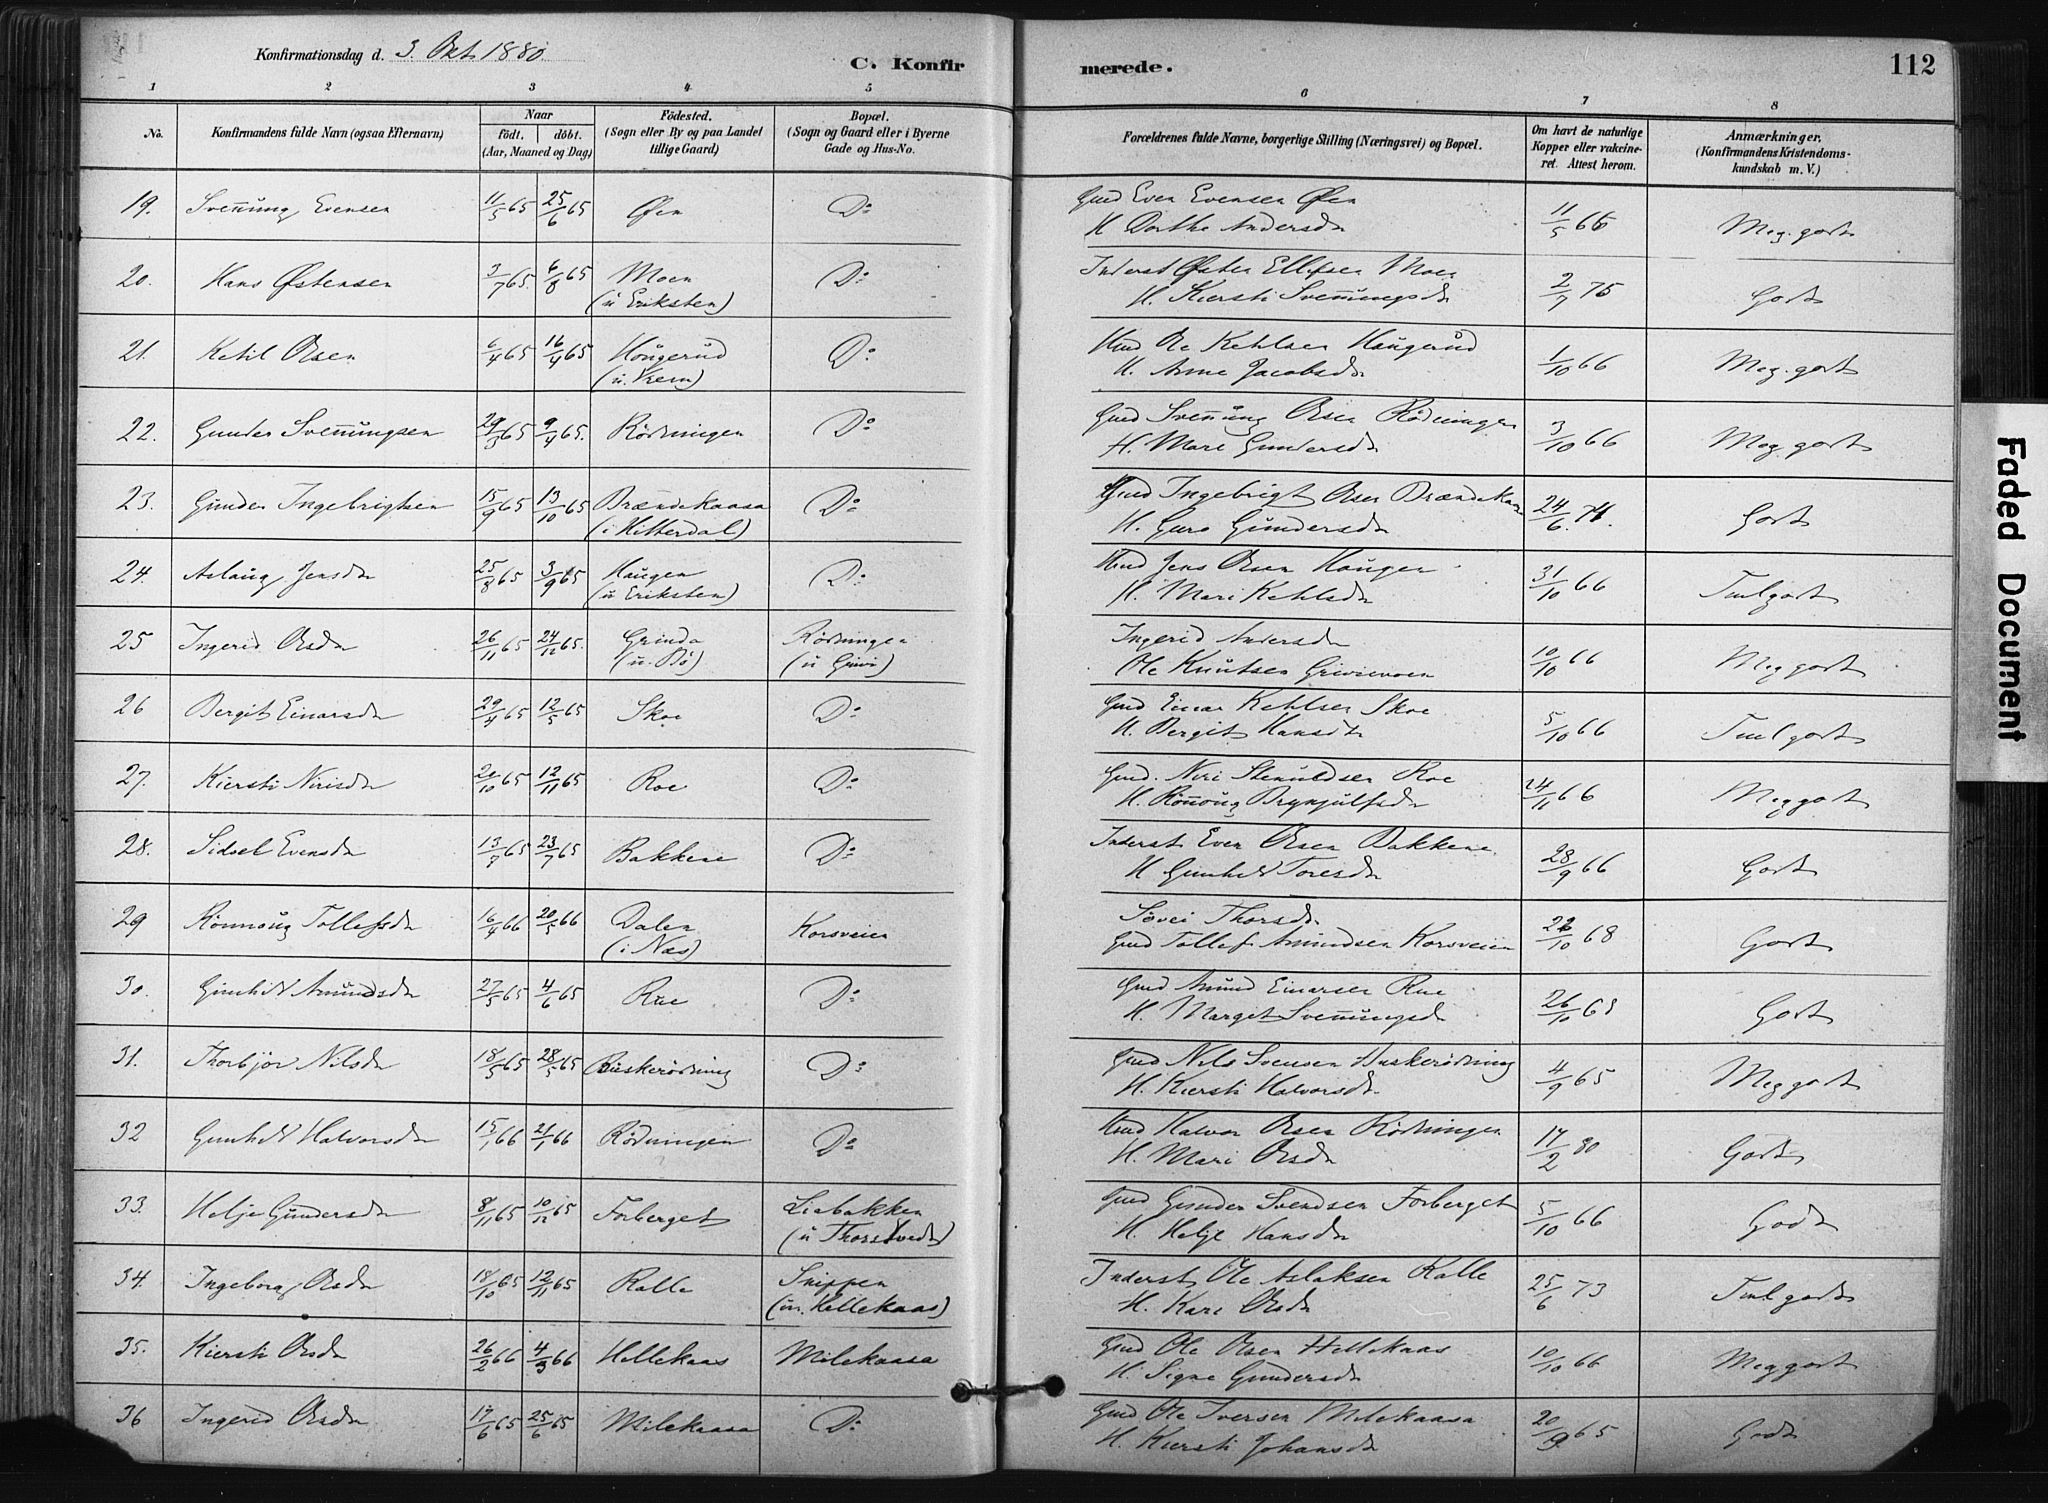 Konfirmationsdag d. 3. Okt. 1880.
C. Konfirmerede.
112
1 2 3 4 5 6 7 8
No.
Konfirmandens fulde Navn (ogsaa Efternavn)
Naar
födt. döbt.
(Aar, Maaned og Dag)
Födested.
(Sogn eller By og paa Landet
tillige Gaard)
Bopæl.
(Sogn og Gaard eller i Byerne
Gade og Hus-No.
Forældrenes fulde Navne, borgerlige Stilling (Næringsvei) og Bopæl.
Om havt de naturlige
Kopper eller vakcine-
ret. Attest herom.
Anmærkninger.
(Konfirmandens Kristendoms-
kundskab m. V.)
19. Svennung Evensen 11/5 65 25/6 65 Øen Do Gmd Even Evensen Øen
H. Dorthe Andersdr 11/5 66 Meg. godt
20. Hans Østensen 3/7 65. 6/8 65 Moen Do Inderst Østen Ellefsen Moen
(u Eriksten) H. Kiersti Svennungsdr 2/7 75 Godt
21. Ketil Olsen 6/4 65 16/4 65 Houngerud Do Hmd Ole Ketilsen Haugerud
H. Anne Jacobsdr 1/10 66 Meg. godt
22. Gunder Svennungsen 29/3 65 9/4 65. Rödningen Do Gmd Svennung Olsen Rödningen
H. Mari Gundersdr 3/10 66 Meg. godt
23. Gunder Ingebrigtsen 15/9 65 13/10 65 Brændekaasa Do Gmd Ingebrigt Olsen Brændekaasa
(i Hitterdal) H. Guro Gundersdr 24/6 74. Godt
24. Aslaug Jensdr 25/8 65 3/9 65 Haugen Do Hmd Jens Olsen Haugen
(u Eriksten) H. Mari Ketilsdr 31/10 66 Tmlgodt
25 Ingerid Olsdr 26/11 65 24/12 65. Grinda Rödningen Ingerid Andersdr
(u. Bö) Ole Knutsen 10/10 66 Meg godt
26 Bergit Einarsdr 29/4 65 12/5 65 Skoe Do Gmd Einar Ketilsen Skoe
H. Bergit Hansdr 5/10 66 Tmlgodt
27. Kiersti Nirisdr 20/10 65 12/11 65 Roe Do Gmd. Niri Stenuldsen Roe
H. Rönnoug Brynjulfsdr 24/11 66 Meg godt
28. Sidsel Evensdr 13/7 65 23/7 65 Bakkene Do Inderst Even Olsen Bakkene
H Gunhild Toresdr 28/9 66 Godt
29 Rönnoug Tollefsdr 16/4 66 20/5 66 Dalen Korsveien Sövei Thorsdr
(i Næs) Gmd Tollef Amundsen Korsveien 22/10 68 Godt
30. Gunhild Amundsdr 27/5 65 4/6 65 Rue Do Gmd Amund Einarsen Rue
H. Marget Svennungsdr 26/10 65 Godt
31. Thorbjör Nilsdr 18/5 65 28/5 65 Buskerödning Do Gmd Nils Svensen Buskerödning
H. Kiersti Halvorsdr. 4/9 65 Meg godt
32 Gunhild Halvorsdr 15/1 66 21/1 66 Rödningen Do Hmd Halvor Olsen Rödningen
H. Mari Olsdr 17/2 80 Godt
33. Helje Gundersdr 8/11 65 10/12 65 Forberget Liabakken Gmd Gunder Svendsen Forberget
(u Thorstvedt) H. Helje Hansdr 5/10 66 Godt
34 Ingeborg Olsdr 18/10 65 12/11 65 Kalle Snippen Inderst Ole Aslaksen Kalle
(u. Hellekaas) H. Kari Olsdr 25/6 73 Tmlgodt
35. Kiersti Olsdr 26/2 66 4/3 66 Hellekaas Milekaasa Gmd Ole Olsen Hellekaas
H. Signe Gundersdr 10/10 66 Meg godt
36 Ingerid Olsdr 17/6 65 25/6 65 Milekaasa Do Gmd Ole Iversen Milekaasa
H. Kiersti Johansdr 20/9 65 Godt
Faded Document